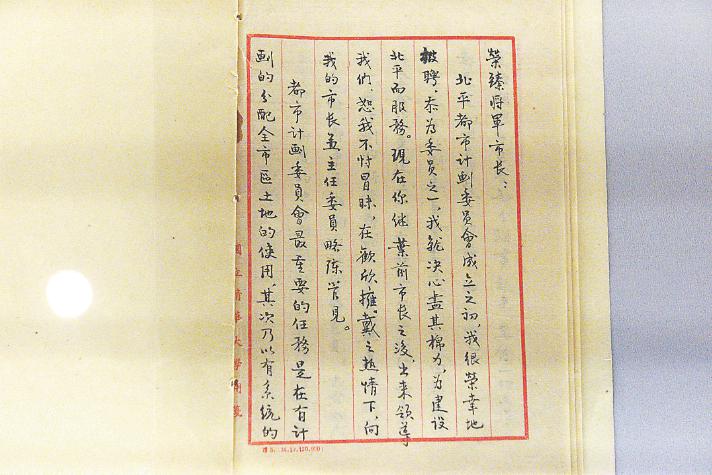 榮臻将軍市长：
北平都市计劃委員會成立之初，我很榮幸地
被聘，忝为委員之一，我就决心盡其棉力，为建设
北平而服務。现在你继葉前市长之後，出来领导
我們，恕我不忖冒昧，在歡欣擁戴之热情下，向
我的市长盖主任委員略陈管見。
都市计劃委員會最重要的任務是在有计
劃的分配全市區土地的使用，其次乃以有系统的
國立清華大學用箋